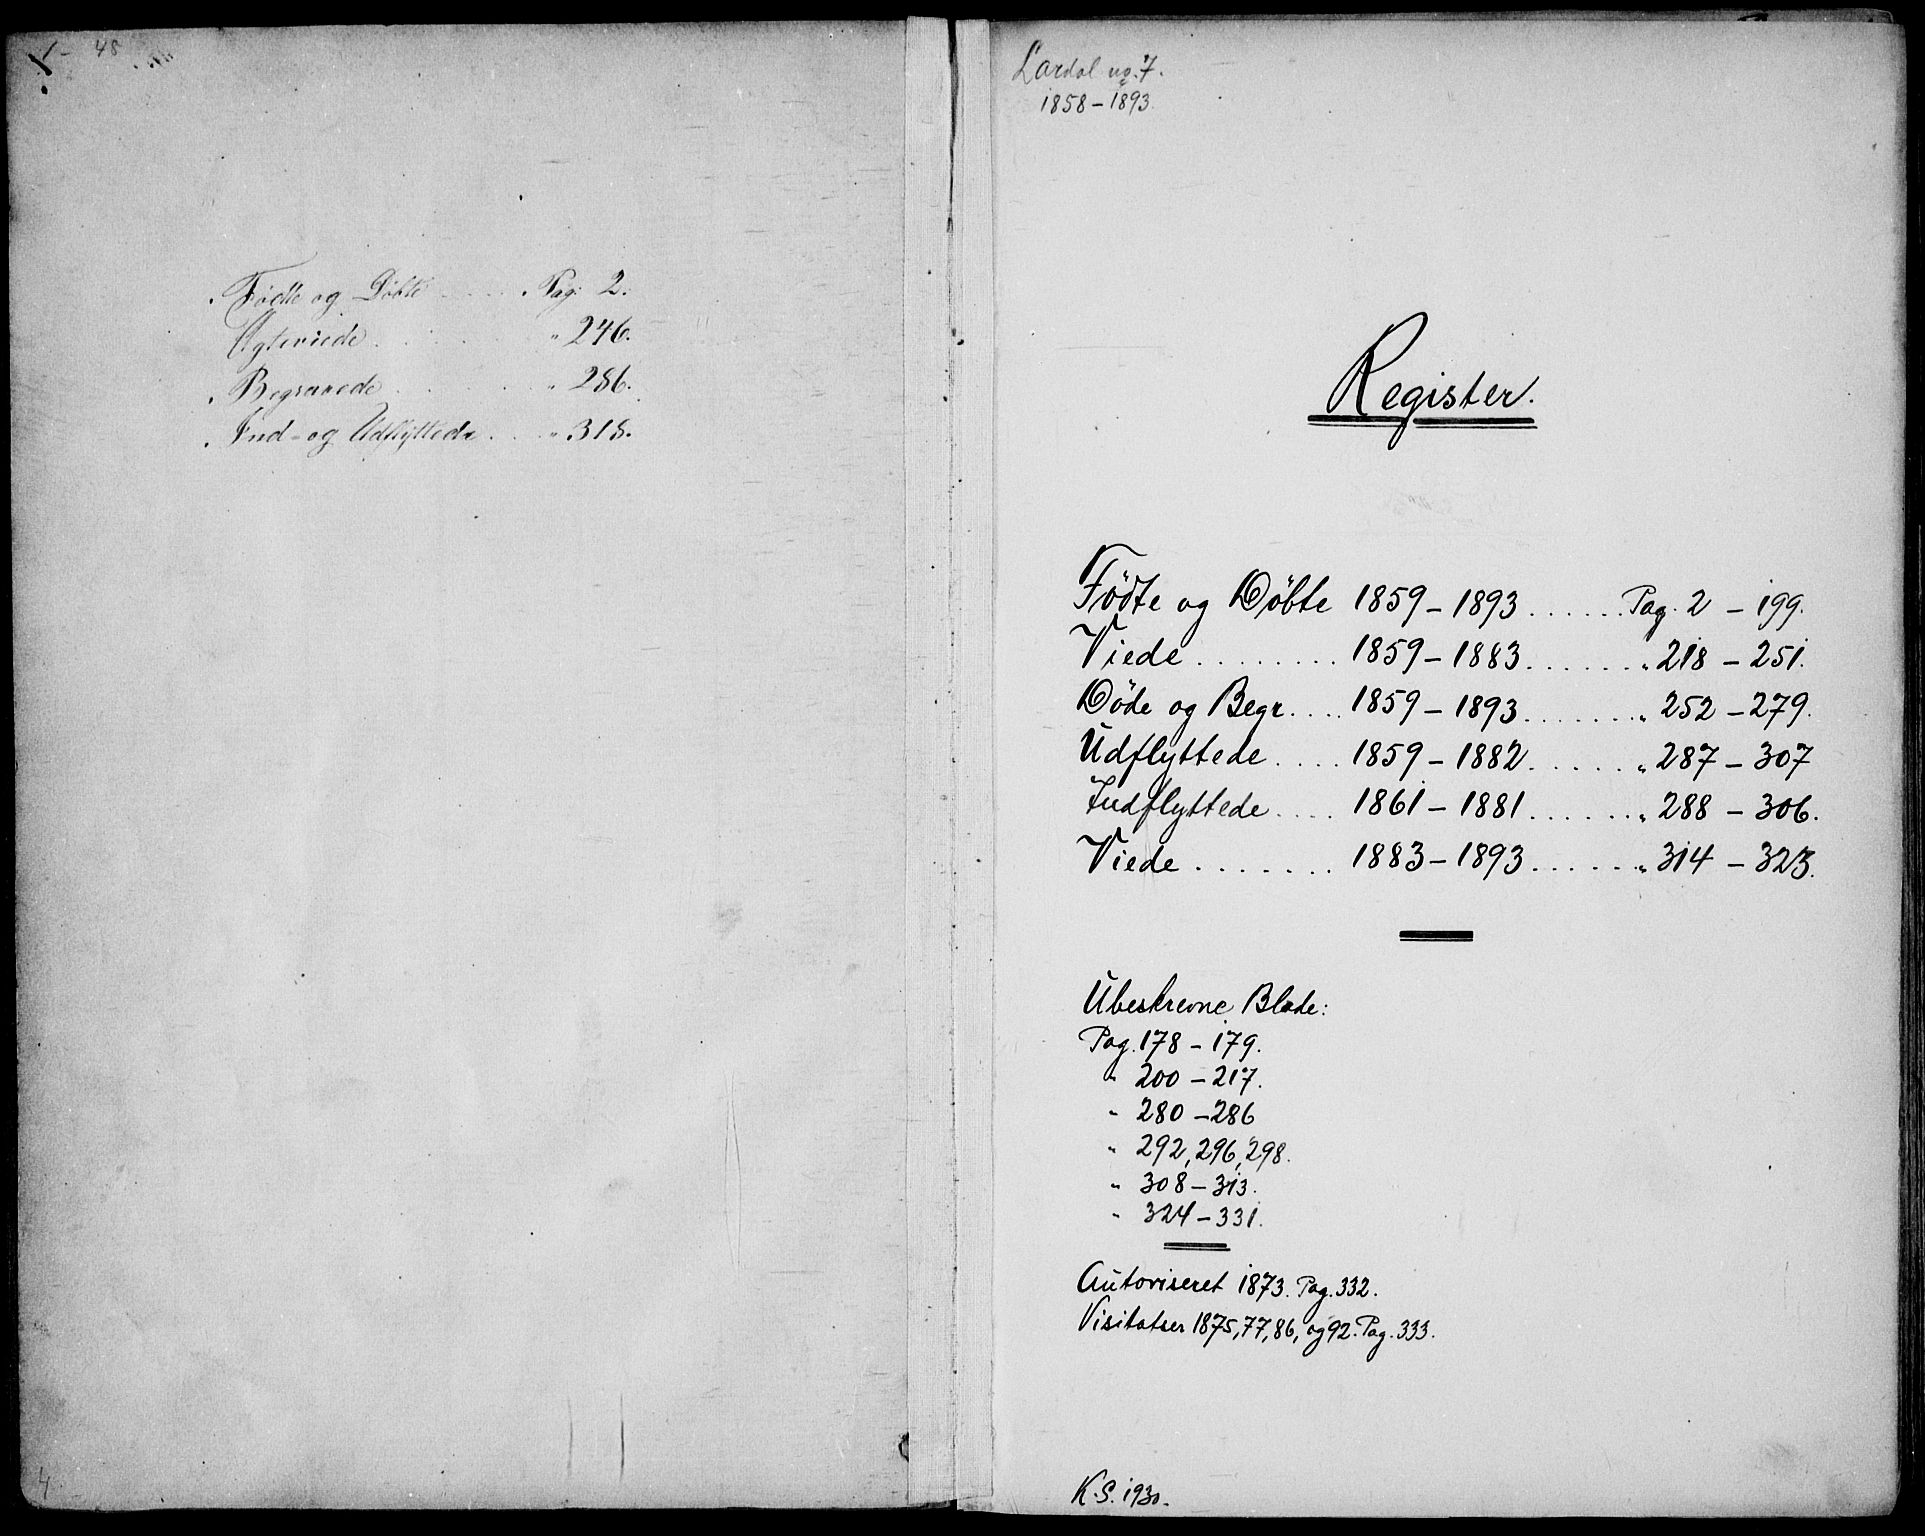 48
Födte og Döbte . . . . . Pag: 2.
Ægteviede . . . . " 246.
Begravede . . . . " 286.
Ind- og Udflyttede . . . " 318.
Lardal no. 7.
1858 – 1893.
Register.
Födte og Döbte 1859 – 1893 . . . . . . Pag. 2 – 199.
Viede . . . . . . . . 1859 – 1883 . . . . . . . " 218 – 251.
Döde og Begr. . . . 1859 – 1893 . . . . . . . " 252 – 279.
Udflyttede . . . . 1859 – 1882 . . . . . . " 287 – 307
Indflyttede . . . . 1861 – 1881 . . . . . . " 288 – 306.
Viede . . . . . . . 1883 – 1893 . . . . . . " 314 – 323.
Ubeskrevne Blade:
Pag. 178 – 179.
" 200 – 217.
" 280 – 286
" 292, 296, 298.
" 308 – 313.
" 324 – 331.
Autoriseret 1873. Pag. 332.
Visitatser 1875, 77, 86, og 92. Pag. 333.
K.S. 1930.
4